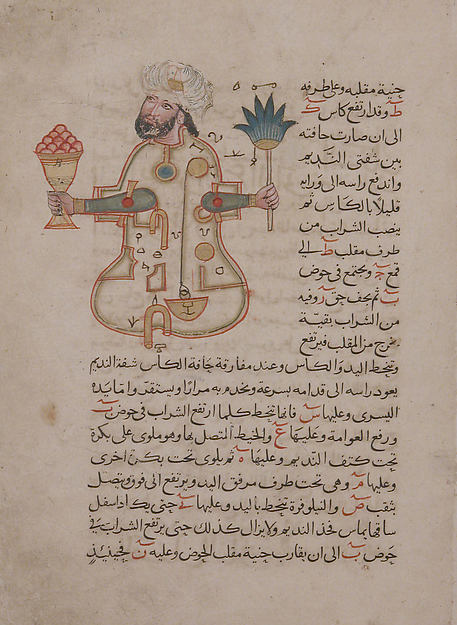 جنبة مقلبه وعلى طرفه
ط وقد ارتفع كاس ك
الى ان صارت حافته
بين شفتى النديم
واندفع راسه الى ورايه
قليلا بالكاس ثم
ينصب الشراب من
طرف مقلب ط الى
قمع ج ويجتمع فى حوض
ب ثم يجف حتى وفيه
من الشراب بقية
تخرج من المقلب فيرتفع
وتنحط اليد والكاس وعند مفارقة حافة الكاس شفة النديم
يعود راسه الى قدامه بسرعة ويخدم به مرارا ويستقر واما يده
اليسرى وعليها س فانها تنحط كلما ارتفع الشراب فى حوض ب
ورفع العوامة وعليها ع والخيط المتصل بها وهو ملوى على بكرة
تحت كتف النديم وعليها ه ثم يلوى تحت بكرة اخرى
وعليها م وهى تحت طرف مرفق اليد ويرتفع الى فوق ويتصل
بثقب ص والنيلوفرة تنحط باليد وعليها ف حتى يكاد اسفل
ساقها يماس فخذ النديم ولا يزال كذلك حتى يرتفع الشراب فى
حوض ب الى ان يقارب جنبة مقلب الحوض وعليه ن فحينيذ